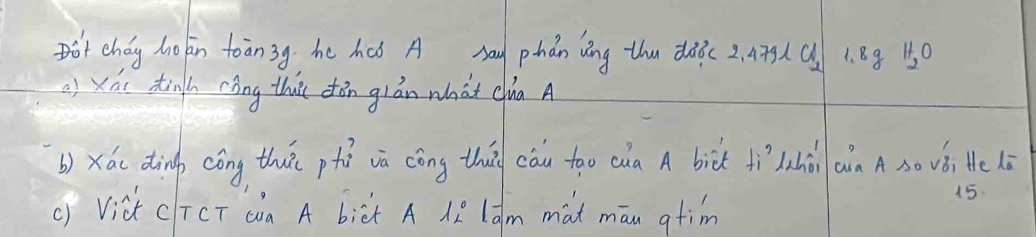 Đốt cháy hoàn toàn 3g. hc hcơ A sau phản ứng thu được 2,479l CO₂ 1,8g H₂O
a) Xác định công thức đơn giản nhất của A
b) Xác định công thức ptử và công thức cấu tạo của A biết tỉ khối của A so với He là 15.
c) Viết CTCT của A biết A là làm mất màu qtím